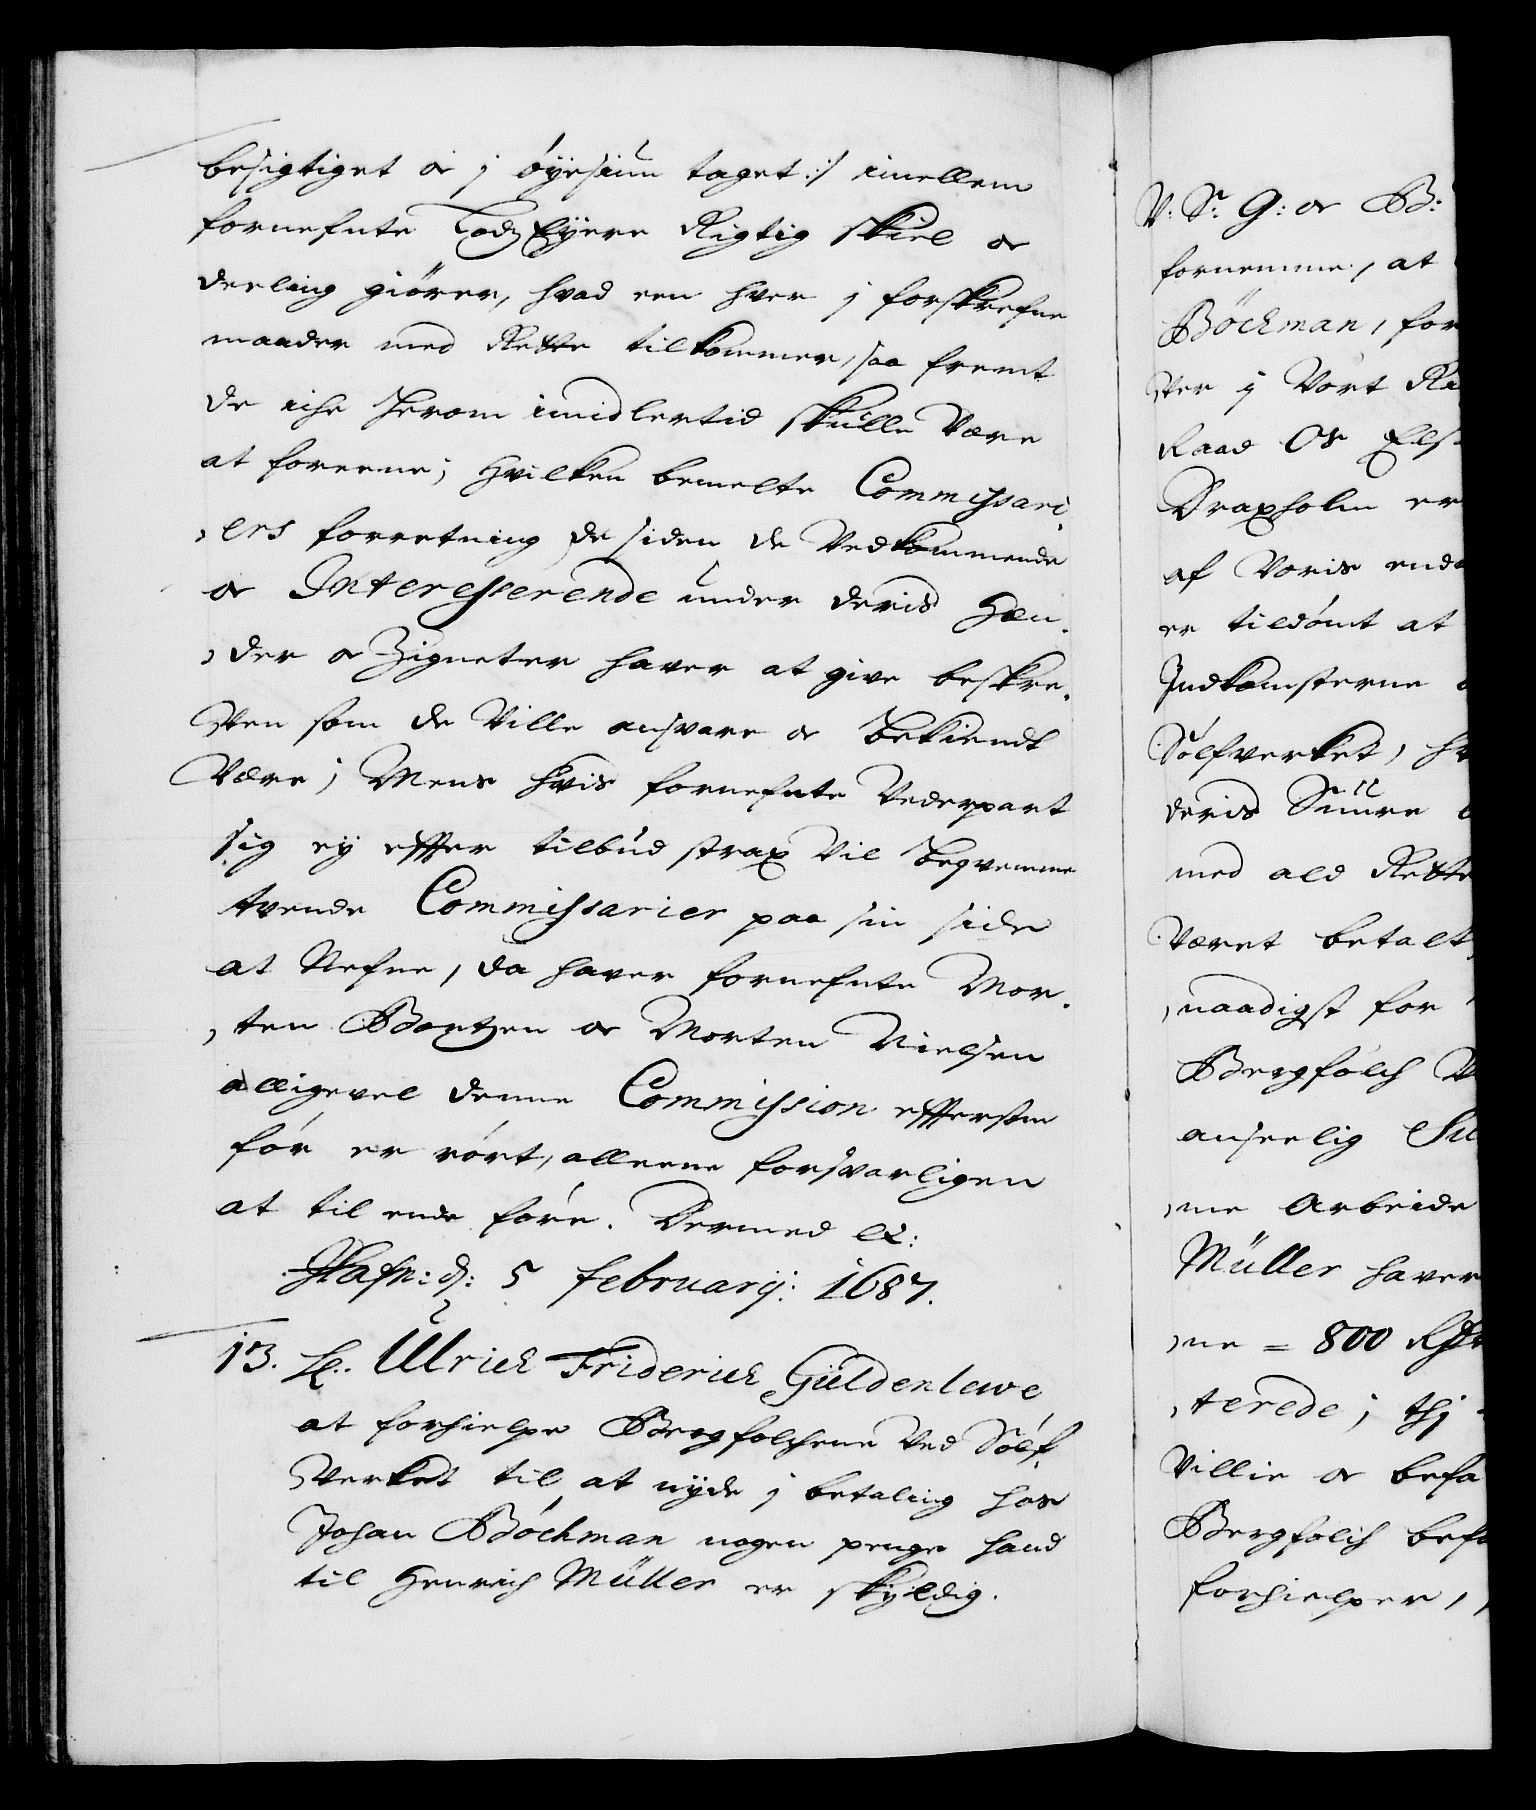 besigtiget oc j øÿesiun taget :/ imellem
fornefnte Lodz Eÿere Rigtig skiel oc
deeling giörer, hvad een hver j forskrefne
maader med Rette tilkommer, saa fremt
de iche herom imidlertid skulle Være
at foreene; Hvilken bemelte Commissari,
,ers forretning de siden de Vedkommende
oc Interesserende under deris Hæn,
,der oc Zigneter haver at give beskre,
ven som de Ville ansvare oc bekiendt
Være; Mens hvis fornefnte Vederpart
sig eÿ effter tilbud strax Vil beqvemme
tvende Commissarier paa sin side
at Nefne, da haver fornefnte Mor,
,ten Bentzen oc Morten Nielsen
alligevel denne Commission effersom
før er rört, alleene forsvarligen
at til ende före. Dermed etc:
Hafn: d: 5 februarij: 1687.
13. L. Ulrich Friderich Güldenlewe
at forhielpe Bergfolchene Ved Sölf,
Verket til at nÿde j betaling hos
Johan Böchman nogen penge hand
til Henrich Müller er skÿldig.
V: Sr: G: oc B:
fornemme, at
Böchman, for
ster j Vort
Raad Oc
Draxholm er
af Voris
er tildömt at
Indkomsterne
Sölfverket,
deris Suure
med ald Rette
Været betalt
,naadigst for
Bergfolch
anseelig
,me Arbeide
Müller haver
,ne = 800 Rdr
,terede; thj
Villie oc befa
Bergfolch
forhielper,